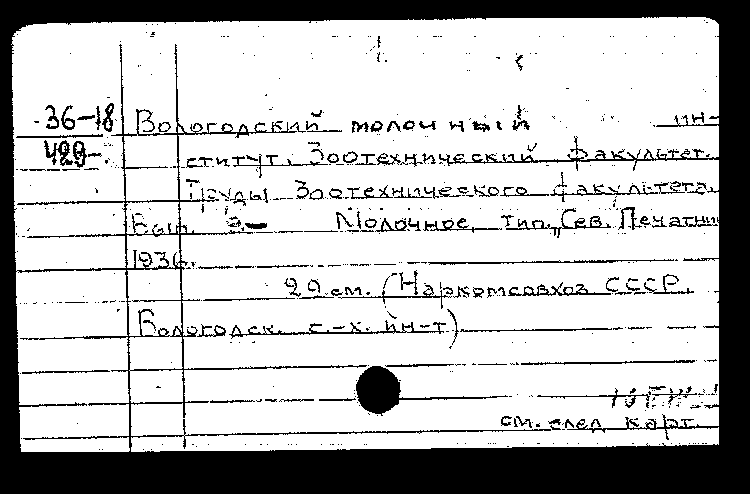 1.
36-18 Вологодский молочный ин-
429-. ститут. Зоотехнический факультет.
Труды Зоотехнического факультета.
Вып. 3- Молочное, тип. „Сев. Печатни
1936.
29 см. (Наркомсовхоз СССР.
Вологодск. с.-х. ин-т)
см. след карт.